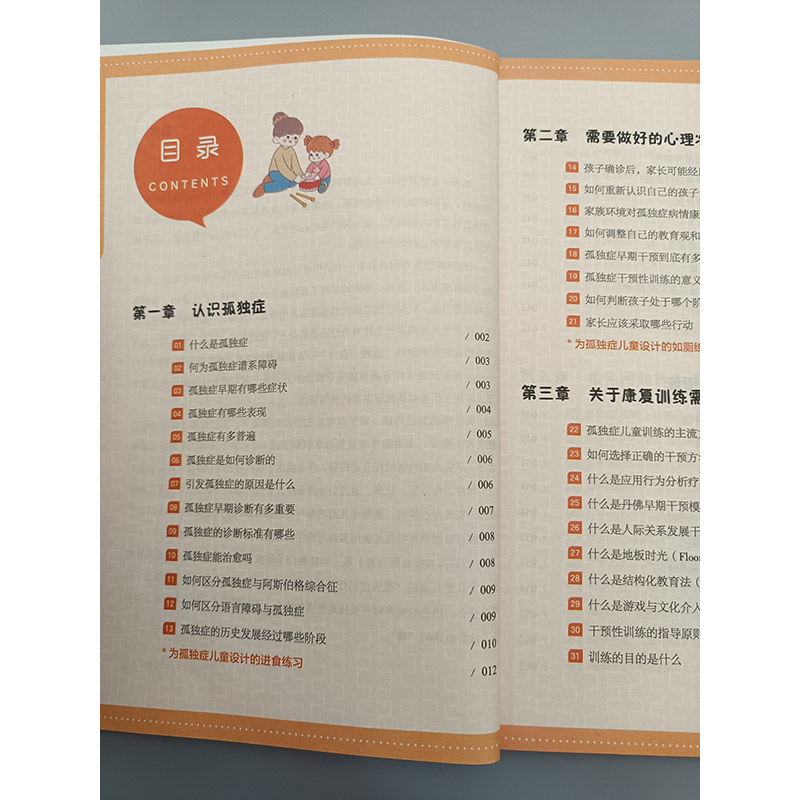 目录
CONTENTS
第一章 认识孤独症
01 什么是孤独症 / 002
02 何为孤独症谱系障碍 / 003
03 孤独症早期有哪些症状 / 003
04 孤独症有哪些表现 / 004
05 孤独症有多普遍 / 005
06 孤独症是如何诊断的 / 006
07 引发孤独症的原因是什么 / 006
08 孤独症早期诊断有多重要 / 007
09 孤独症的诊断标准有哪些 / 008
10 孤独症能治愈吗 / 008
11 如何区分孤独症与阿斯伯格综合征 / 009
12 如何区分语言障碍与孤独症 / 009
13 孤独症的历史发展经过哪些阶段 / 010
* 为孤独症儿童设计的进食练习 / 012
第二章 需要做好的心理
14 孩子确诊后，家长可能经
15 如何重新认识自己的孩子
16 家族环境对孤独症病情康
17 如何调整自己的教育观和
18 孤独症早期干预到底有多
19 孤独症干预性训练的意义
20 如何判断孩子处于哪个阶
21 家长应该采取哪些行动
* 为孤独症儿童设计的如厕练
第三章 关于康复训练需
22 孤独症儿童训练的主流
23 如何选择正确的干预方
24 什么是应用行为分析疗
25 什么是丹佛早期干预模
26 什么是人际关系发展干
27 什么是地板时光（Floor
28 什么是结构化教育法（
29 什么是游戏与文化介入
30 干预性训练的指导原则
31 训练的目的是什么